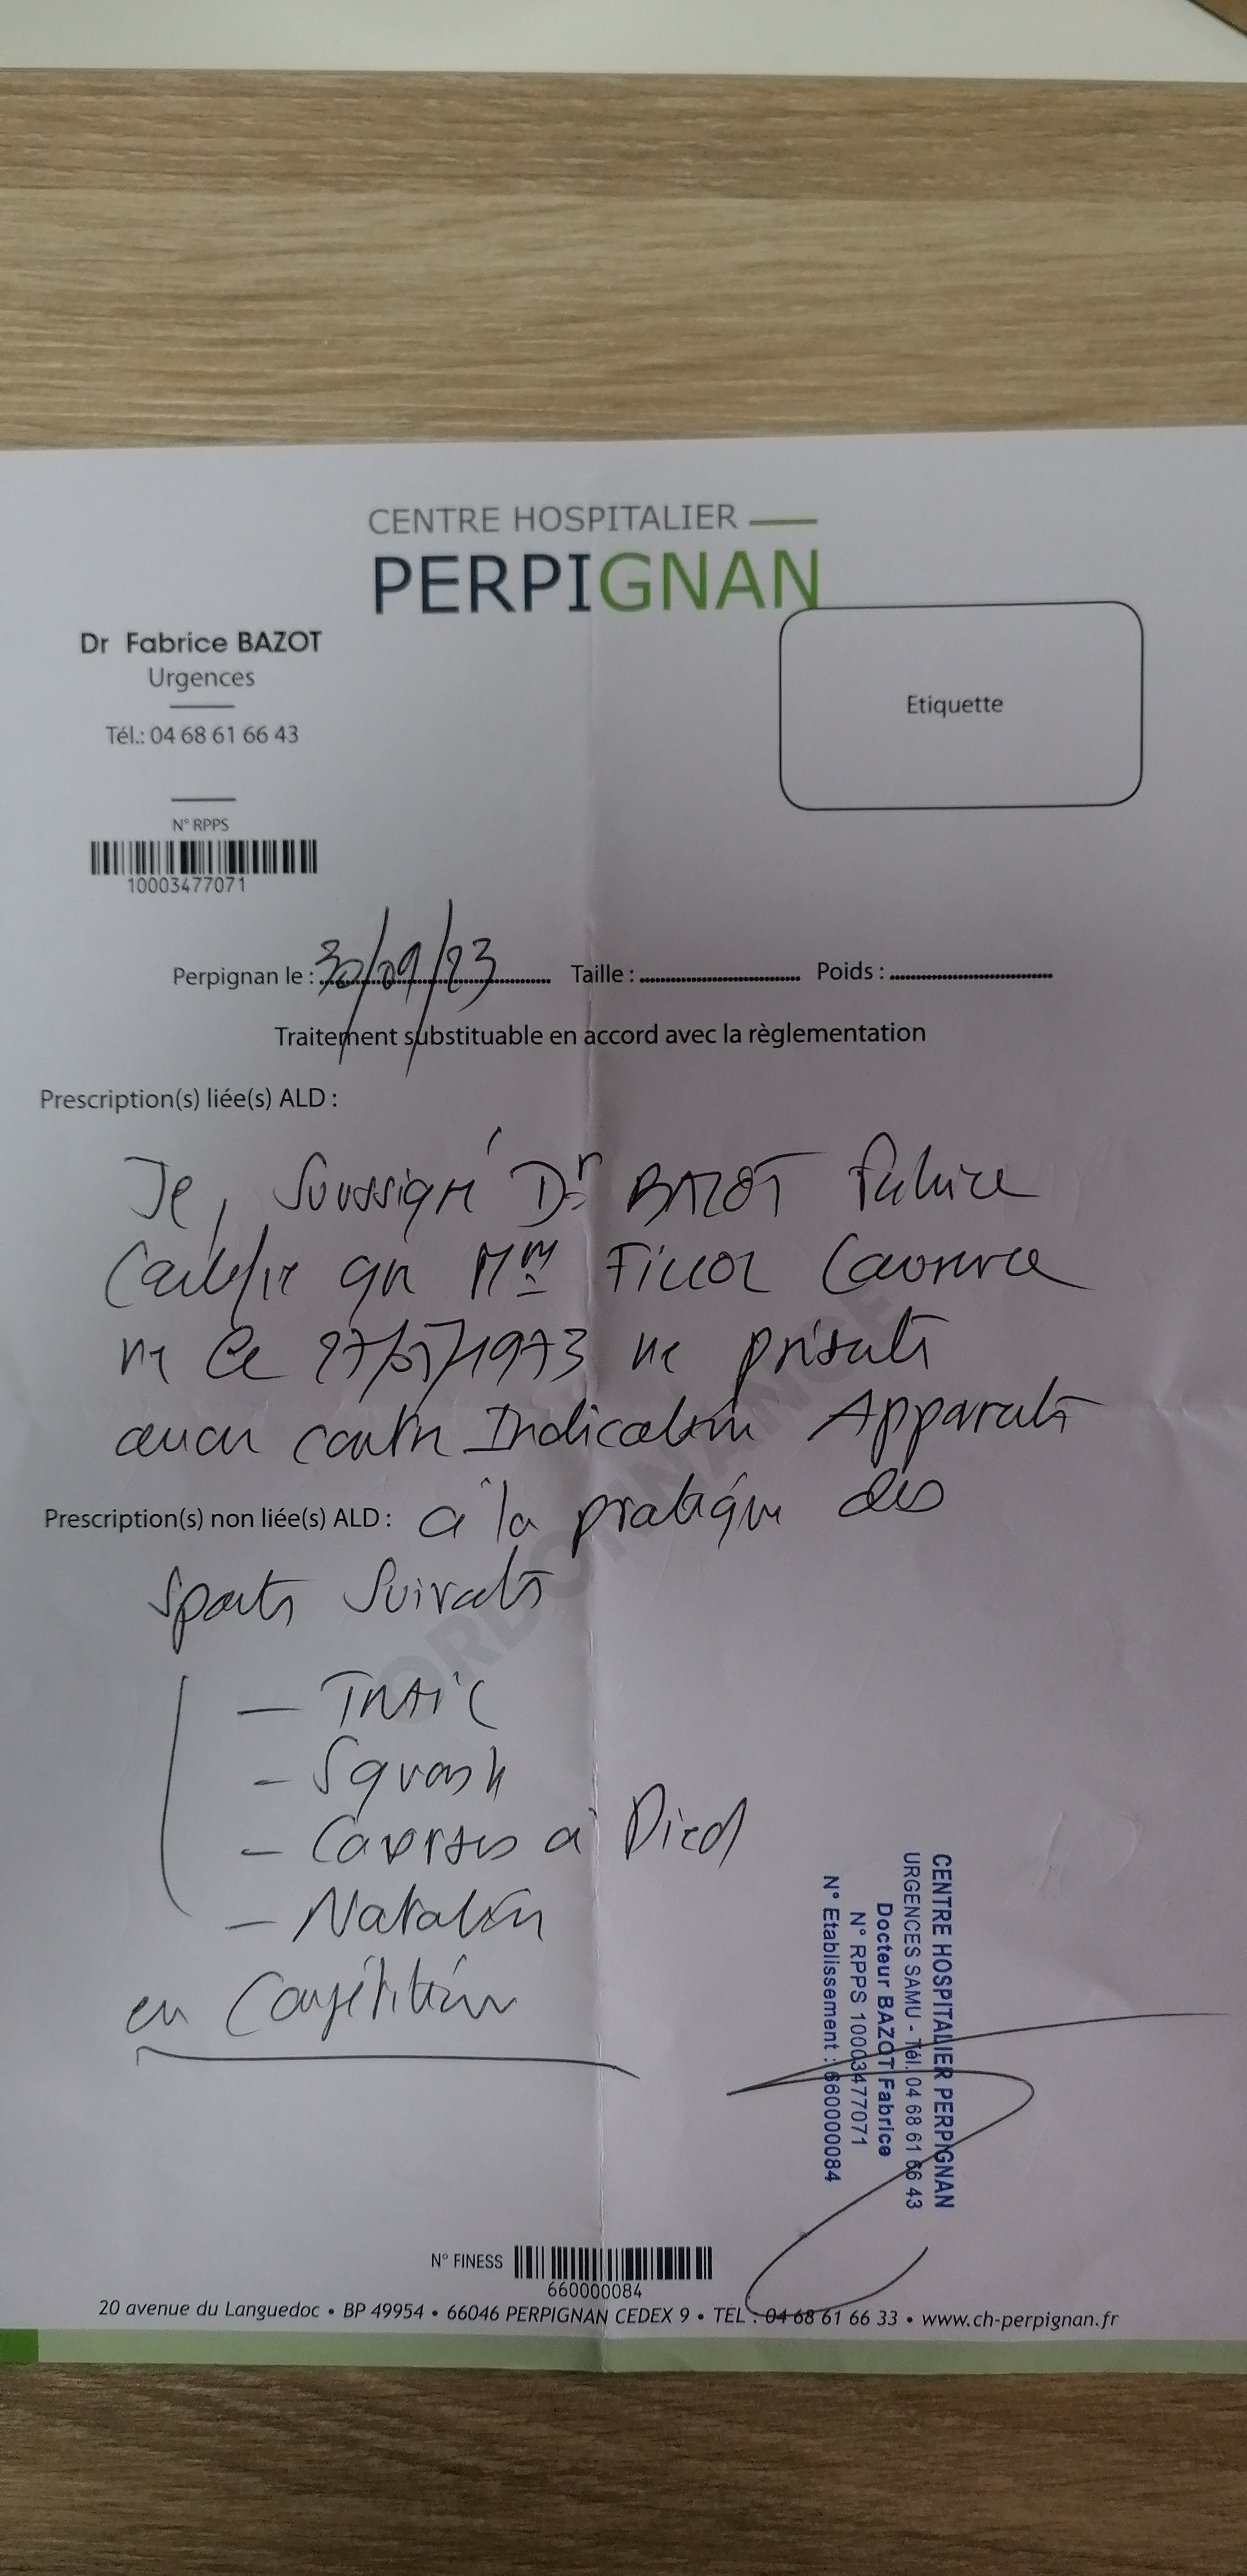 CENTRE HOSPITALIER
PERPIGNAN
Dr Fabrice BAZOT
Urgences
Tél.: 04 68 61 66 43
Etiquette
N° RPPS
10003477071
Perpignan le : 30/09/23 Taille : Poids :
Traitement substituable en accord avec la règlementation
Prescription(s) liée(s) ALD :
Je, Soussigné Dr BAZOT Fabrice
Certifie que Mme
né le 27/07/1973 ne présente
aucun contre Indication Apparente
Prescription(s) non liée(s) ALD : à la pratique des
Sports Suivants
- Squash
- Courses à Pied
- Natation
en Compétition
ORDONNANCE
CENTRE HOSPITALIER PERPIGNAN
URGENCES SAMU - Tél. 04 68 61 66 43
Docteur BAZOT Fabrice
N° RPPS 10003477071
N° Etablissement : 660000084
N° FINESS
660000084
20 avenue du Languedoc • BP 49954 • 66046 PERPIGNAN CEDEX 9 • TEL : 04 68 61 66 33 • www.ch-perpignan.fr